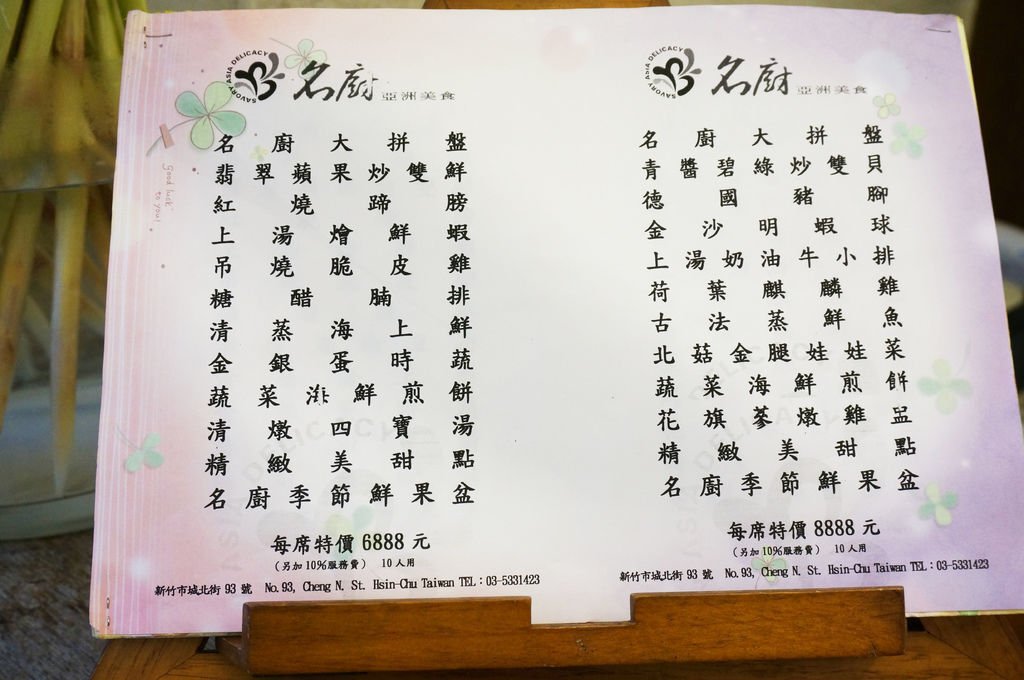 SAVORY ASIA DELICACY
名廚 亞洲美食
good luck to you!
名廚大拼盤
翡翠蘋果炒雙鮮
紅燒蹄膀
上湯燴鮮蝦
吊燒脆皮雞
糖醋腩排
清蒸海上鮮
金銀蛋時蔬
蔬菜海鮮煎餅
清燉四寶湯
精緻美甜點
名廚季節鮮果盆
每席特價 6888 元
(另加 10%服務費) 10 人用
新竹市城北街 93 號 No.93, Cheng N. St. Hsin-Chu Taiwan TEL：03-5331423
SAVORY ASIA DELICACY
名廚 亞洲美食
名廚大拼盤
青醬碧綠炒雙貝
德國豬腳
金沙明蝦球
上湯奶油牛小排
荷葉麒麟雞
古法蒸鮮魚
北菇金腿娃娃菜
蔬菜海鮮煎餅
花旗蔘燉雞盅
精緻美甜點
名廚季節鮮果盆
每席特價 8888 元
(另加 10%服務費) 10 人用
新竹市城北街 93 號 No.93, Cheng N. St. Hsin-Chu Taiwan TEL：03-5331423